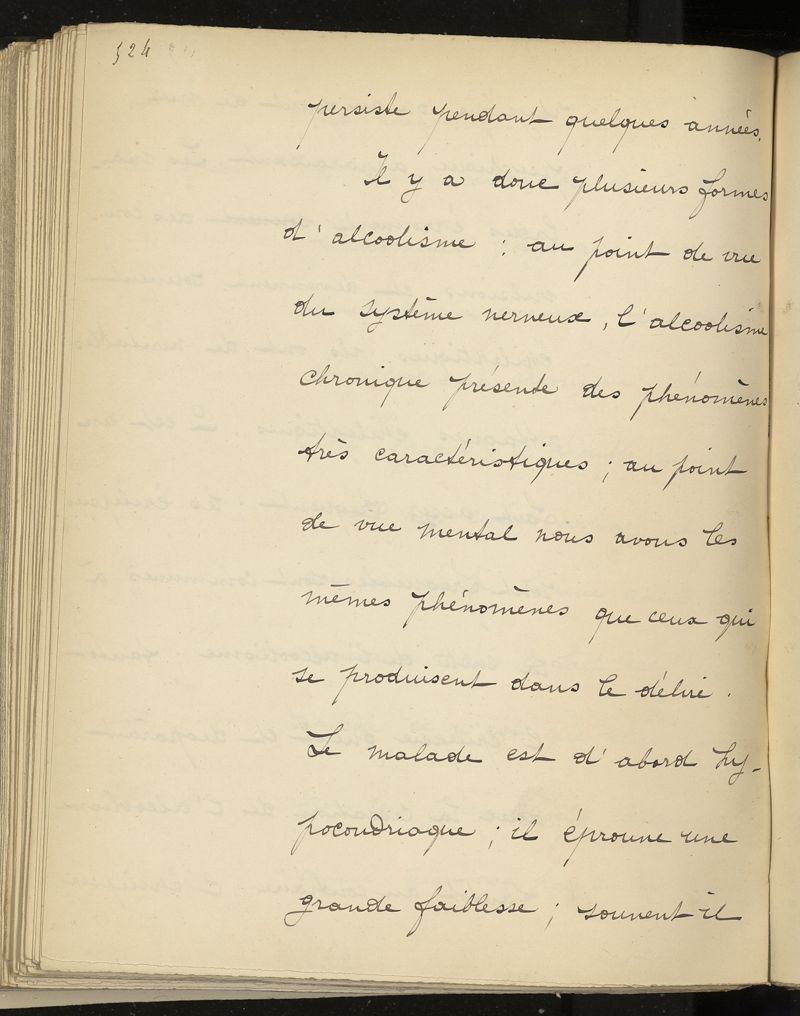 524
persiste pendant quelques années.
Il y a donc plusieurs formes
d'alcoolisme : au point de vue
du système nerveux, l'alcoolisme
chronique présente des phénomènes
très caractéristiques ; au point
de vue mental nous avons les
mêmes phénomènes que ceux qui
se produisent dans le délire.
Le malade est d'abord hy-
pocondriaque ; il éprouve une
grande faiblesse ; souvent il